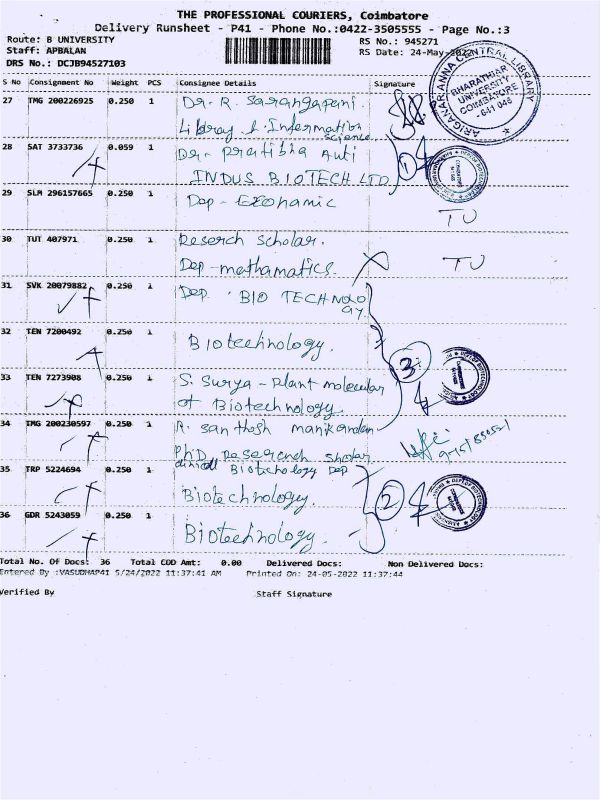 THE PROFESSIONAL COURIERS, Coimbatore
Delivery Runsheet - P41 - Phone No.:0422-3505555 - Page No.:3
Route: B UNIVERSITY
Staff: APBALAN
DRS No.: DCJB94527103
RS No.: 945271
RS Date: 24-May-2022
ARIGNAR ANNA CENTRAL LIBRARY
BHARATHIAR
UNIVERSITY
COIMBATORE
- 641 046
S No Consignment No Weight PCS Consignee Details Signature
27 TMG 200226925 0.250 1 Dr. R. Sarangapani
Library & Information
Science
28 SAT 3733736 0.059 1 Dr. Pratibha
INDUS BIOTECH LTD
1
29 SLM 296157665 0.250 1 Dep - Exonamic
TU
30 TUT 407971 0.250 1 Reserch scholar.
Dep - mathamatics.
TU
31 SVK 20079882 0.250 1 Dep. BIO TECHNOLO
GY.
32 TEN 7200492 0.250 1 Biotechnology.
3
33 TEN 7273908 0.250 1 S. Surya - Plant molecular
of Biotechnology
34 TMG 200230597 0.250 1 R. santhosh manikandan
PhD Research sholar
Biotechology Dep
35 TRP 5224694 0.250 1 Biotechnology.
2
36 GDR 5243059 0.250 1 Biotechnology.
Total No. Of Docs: 36 Total COD Amt: 0.00 Delivered Docs: Non Delivered Docs:
Entered By :VASUDHAP41 5/24/2022 11:37:41 AM Printed On: 24-05-2022 11:37:44
Verified By Staff Signature